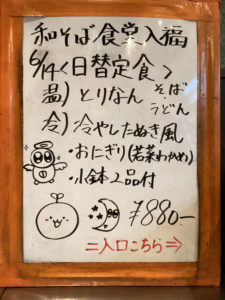 和そば食堂入福
6/14<日替定食>
温)とりなん そば・うどん
冷)冷やしたぬき風
・おにぎり(若菜わかめ)
・小鉢2品付
¥880-
=入口こちら⇒